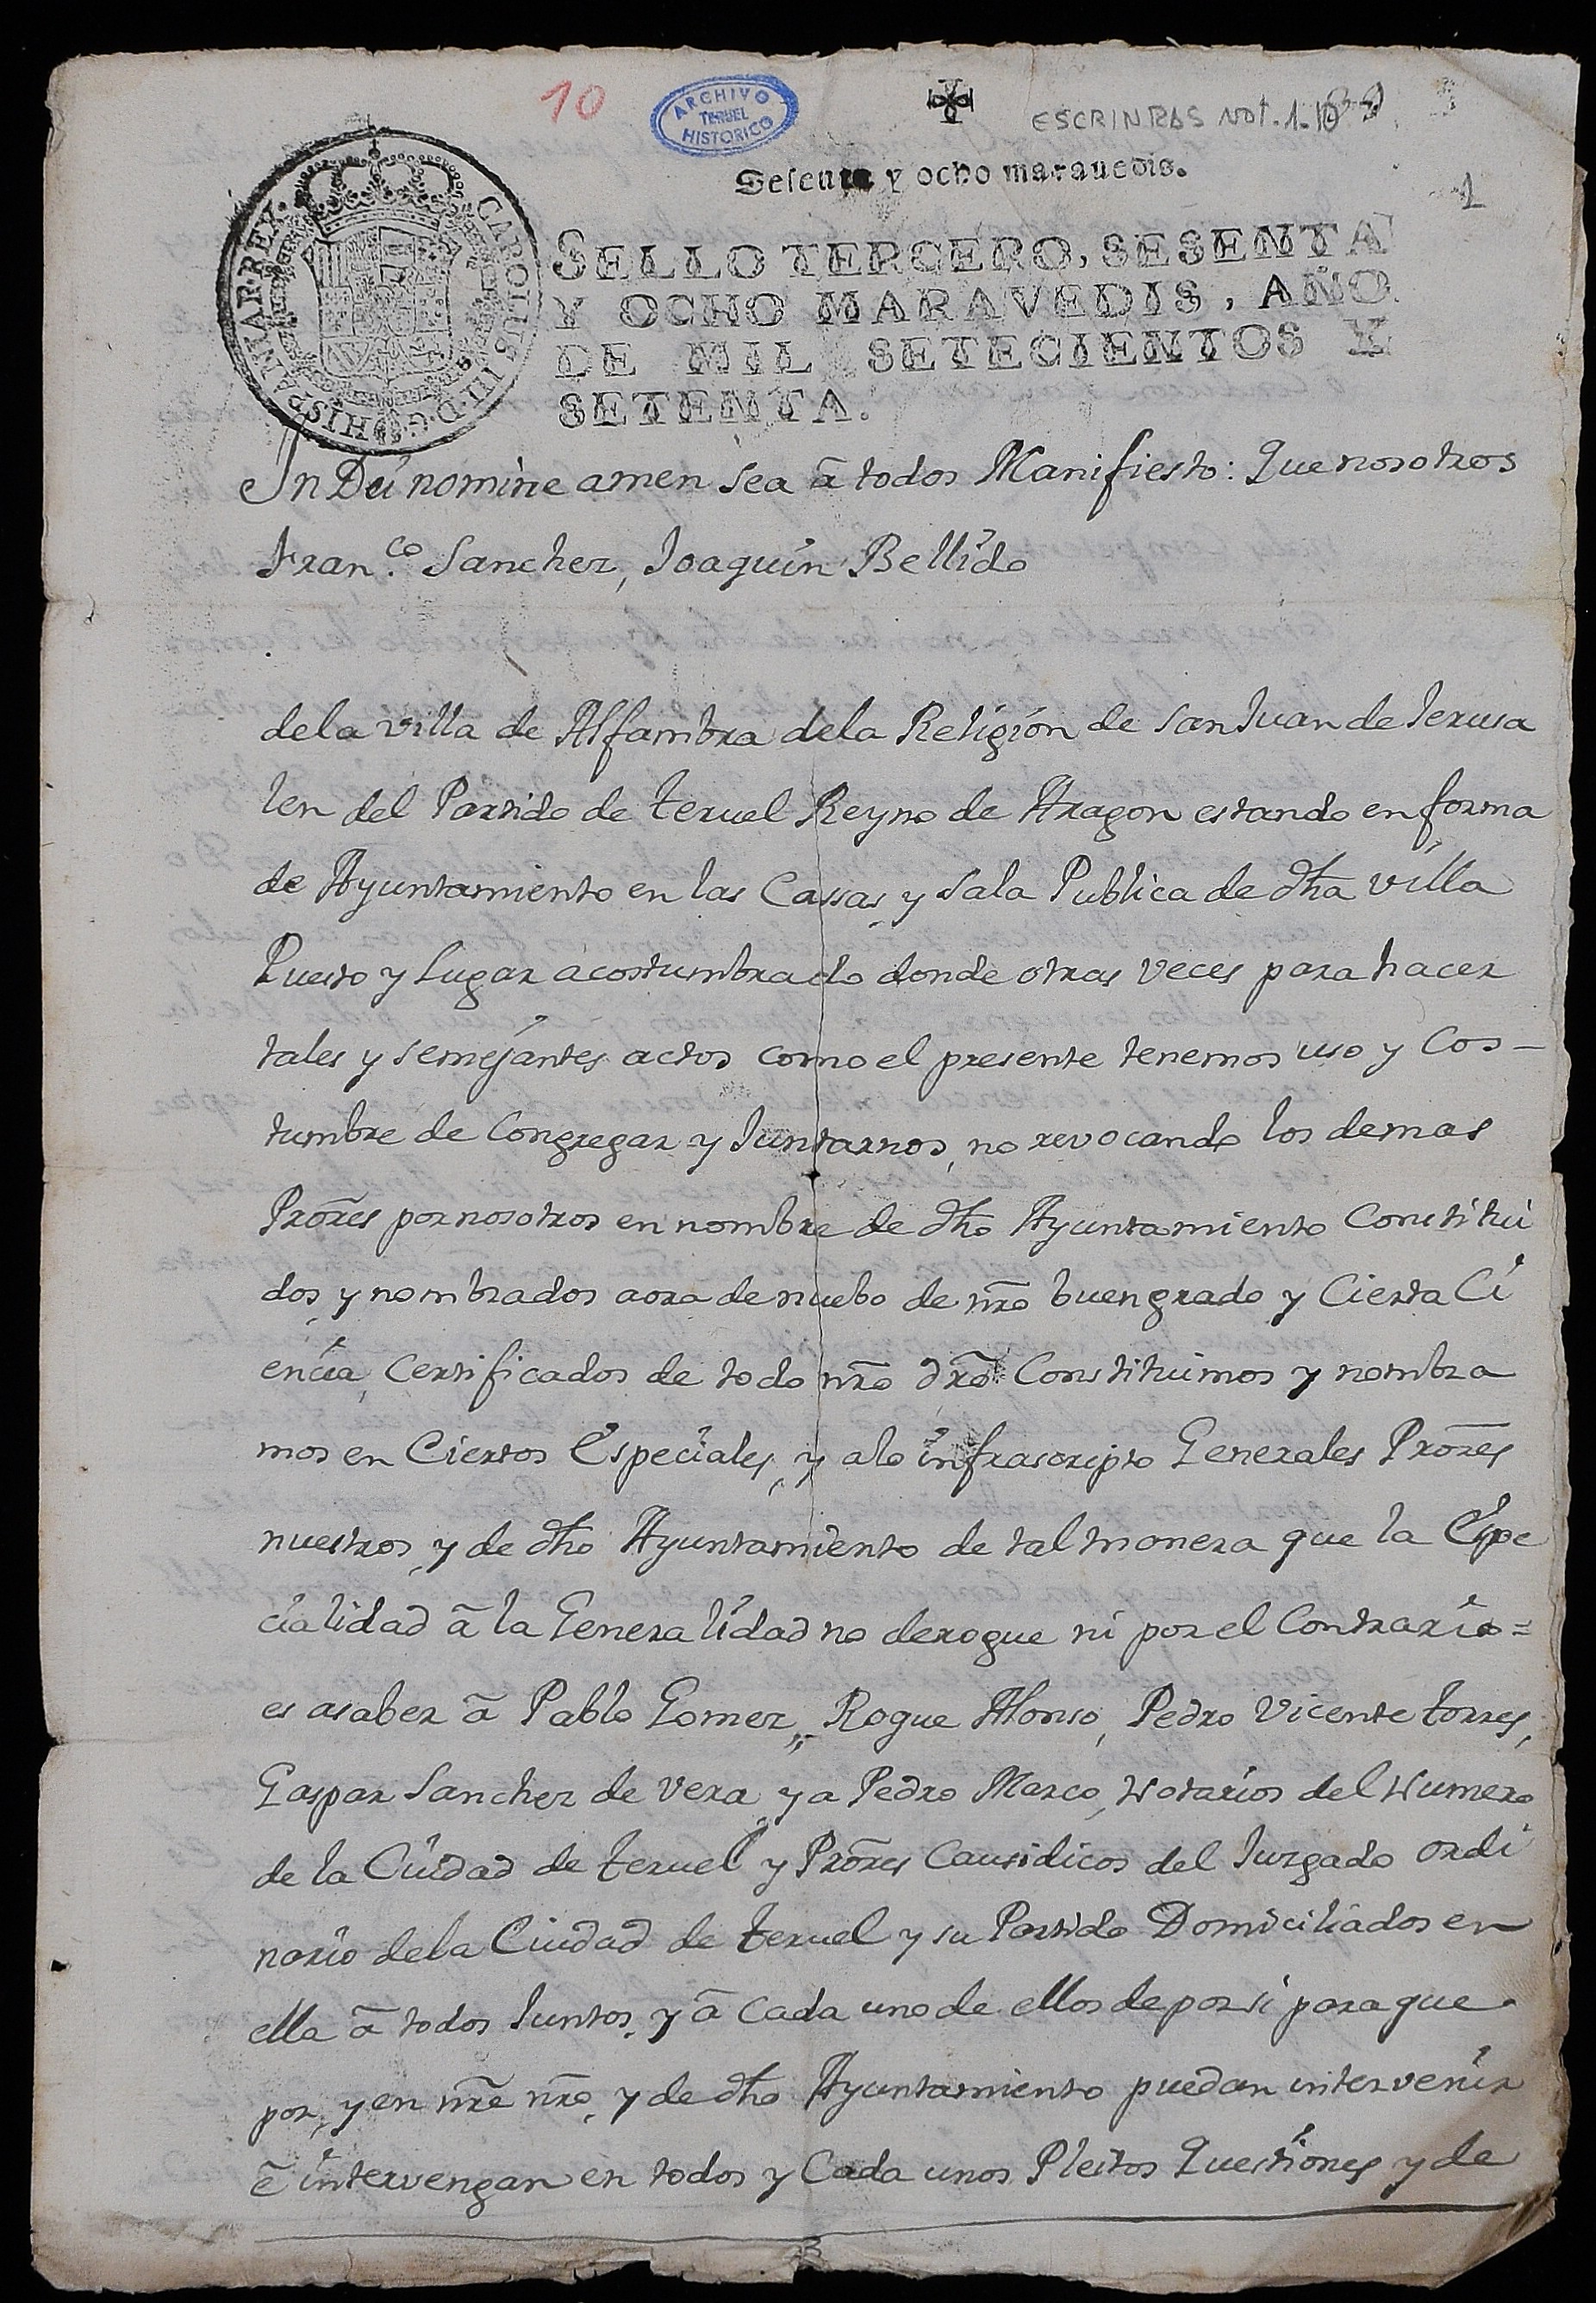 10
ARCHIVO
TERUEL
HISTORICO
ESCRINRAS NOT. 1-10
1
Sesenta y ocho marauedis.
SELLO TERCERO, SESENTA
Y OCHO MARAVEDIS, AÑO
DE MIL SETECIENTOS Y
SETENTA.
CAROLUS III D. G. HISPANIAR. REX.
In Dei nomine amen sea â todos Manifiesto: Que nosotros
Fran.co Sanchez, Joaquin Bellido
dela villa de Alfambra dela Religion de San Juan de Jerusa
len del Partido de teruel Reyno de Aragon estando en forma
de Ayuntamiento en las Cassas y Sala Publica de dha villa
Puesto y Lugar acostumbrado donde otras veces para hacer
tales y semejantes actos como el presente tenemos uso y Cos-
tumbre de Congregar y Juntarnos, no revocando los demas
Prores por nosotros en nombre de dho Ayuntamiento Constitui
dos, y nombrados aora de nuebo de nro buen grado y Cierta Ci
encia, Certificados de todo nro dro Constituimos y nombra
mos en Ciertos Especiales, y alo infrascripto Generales Prores
nuestros, y de dho Ayuntamiento de tal manera que la Espe
cialidad â la Generalidad no derogue ni por el Contrario=
es asaber â Pablo Gomez, Roque Alonso, Pedro Vicente torres,
Gaspar Sanchez de Vera, y a Pedro Marco, Notarios del Numero
de la Ciudad de teruel y Prores Causidicos del Juzgado ordi
nario dela Ciudad de teruel y su Partido Domiciliados en
ella â todos Juntos, y â Cada uno de ellos de por si para que
por, y en nre nro, y de dho Ayuntamiento puedan intervenir
ê intervengan en todos y Cada unos Pleitos Questiones y de